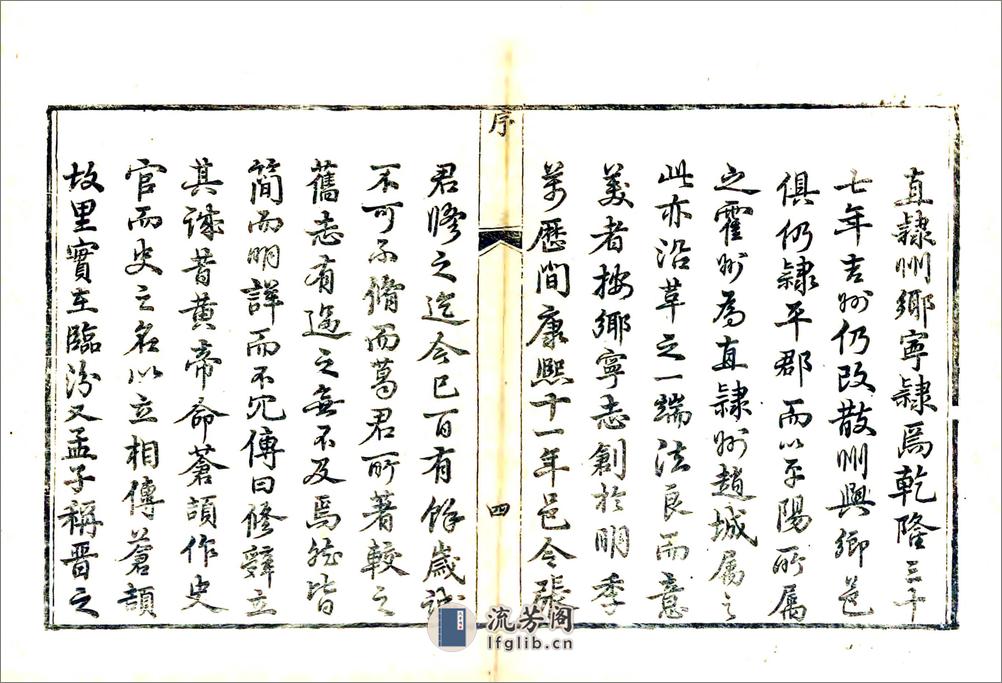 直隸州鄉寧隸焉乾隆三十
七年吉州仍改散州與鄉邑
俱仍隸平郡而以平陽所屬
之霍州爲直隸州趙城屬之
此亦沿革之一端法良而意
美者按鄉寧志創於明季
萬歷間康熙十一年邑令張
序
四
君修之迄今已百有餘歲誠
不可不脩而葛君所著較之
舊志有過之無不及焉然皆
簡而明詳而不冗傳曰修辭立
其誠昔黃帝命蒼頡作史
官而史之名以立相傳蒼頡
故里實在臨汾又孟子稱晉之
流芳阁
lfglib.cn